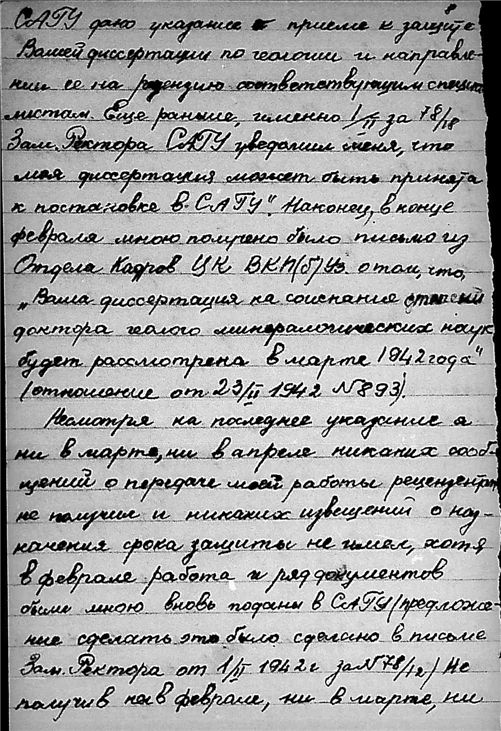 САГУ дано указание о приеме к защите
Вашей диссертации по геологии и направле-
нии ее на рецензию соответствующим специа-
листам. Еще раньше, именно 1/II за 78/18
Зам. Ректора САГУ уведомил меня, что
моя диссертация может быть принята
к постановке в САГУ". Наконец, в конце
февраля мною получено было письмо из
Отдела Кадров ЦК ВКП(б)Уз о том, что,
„Ваша диссертация на соискание степени
доктора геолого минералогических наук
будет рассмотрена в марте 1942 года"
(отношение от 23/II 1942 N 893).
Несмотря на последнее указание я
ни в марте, ни в апреле никаких сооб-
щений о передаче моей работы рецензентам
не получил и никаких извещений о наз-
начения срока защиты не имел, хотя
в феврале работа и ряд документов
были мною вновь поданы в САГУ (предложе-
ние сделать это было сделано в письме
Зам. Ректора от 1/II 1942 г за N 78/18) Не
получив в феврале, ни в марте, ни